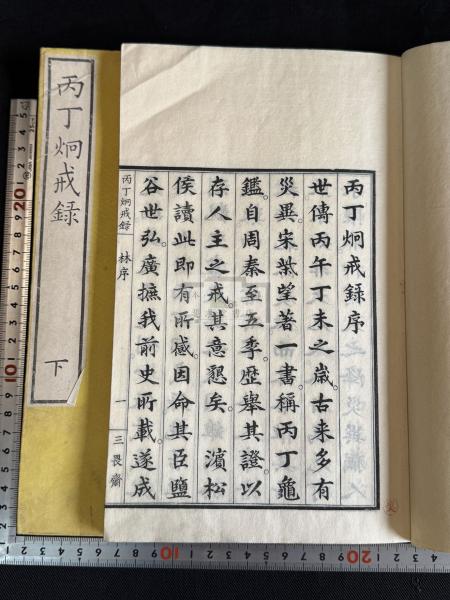 丙丁炯戒録序
世傳丙午丁未之歳古来多有
災異宋柴望著一書稱丙丁龜
鑑自周秦至五季歴舉其證以
存人主之戒其意懇矣濱松
侯讀此即有所感因命其臣鹽
谷世弘廣摭我前史所載遂成
丙丁炯戒録 林序 一 三畏齋
丙丁炯戒録 下